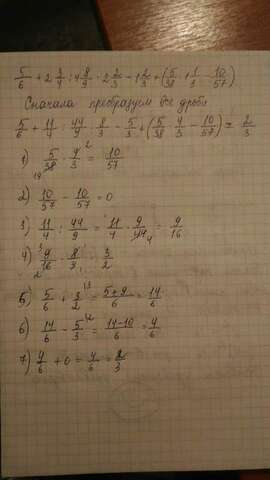 5/6 + 2 3/4 : 4 8/9 · 2 2/3 - 1 2/3 + (5/38 · 1 1/3 - 10/57)
Сначала преобразуем все дроби
5/6 + 11/4 : 44/9 · 8/3 - 5/3 + (5/38 · 4/3 - 10/57) = 2/3
1) 5/38 · 4/3 = 10/57
2) 10/57 - 10/57 = 0
3) 11/4 : 44/9 = 11/4 · 9/44 = 9/16
4) 9/16 · 8/3 = 3/2
5) 5/6 + 3/2 = 5+9/6 = 14/6
6) 14/6 - 5/3 = 14-10/6 = 4/6
7) 4/6 + 0 = 4/6 = 2/3